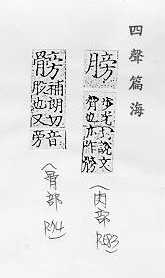 四聲篇海
膀
步光切說文
脅也亦作髈
(肉部
髈
補朗切音
股也又旁
(骨部